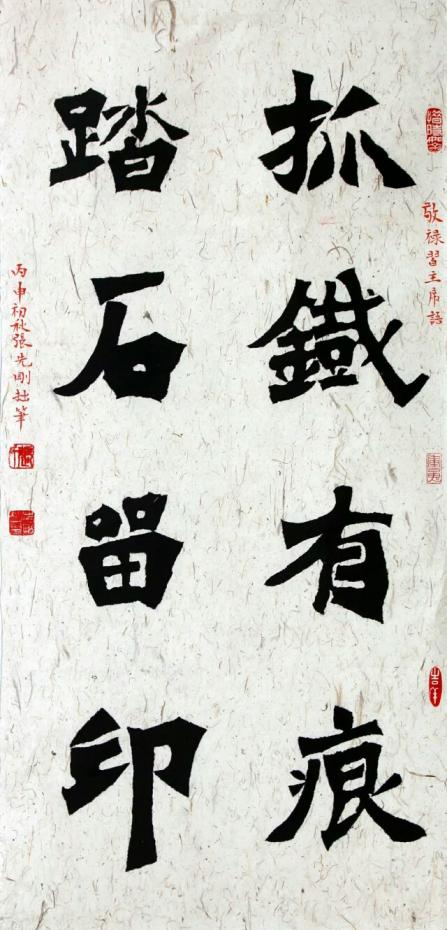 敬禄習主席語
吉羊
抓鐵有痕
踏石留印
丙申初秋張先剛拙筆